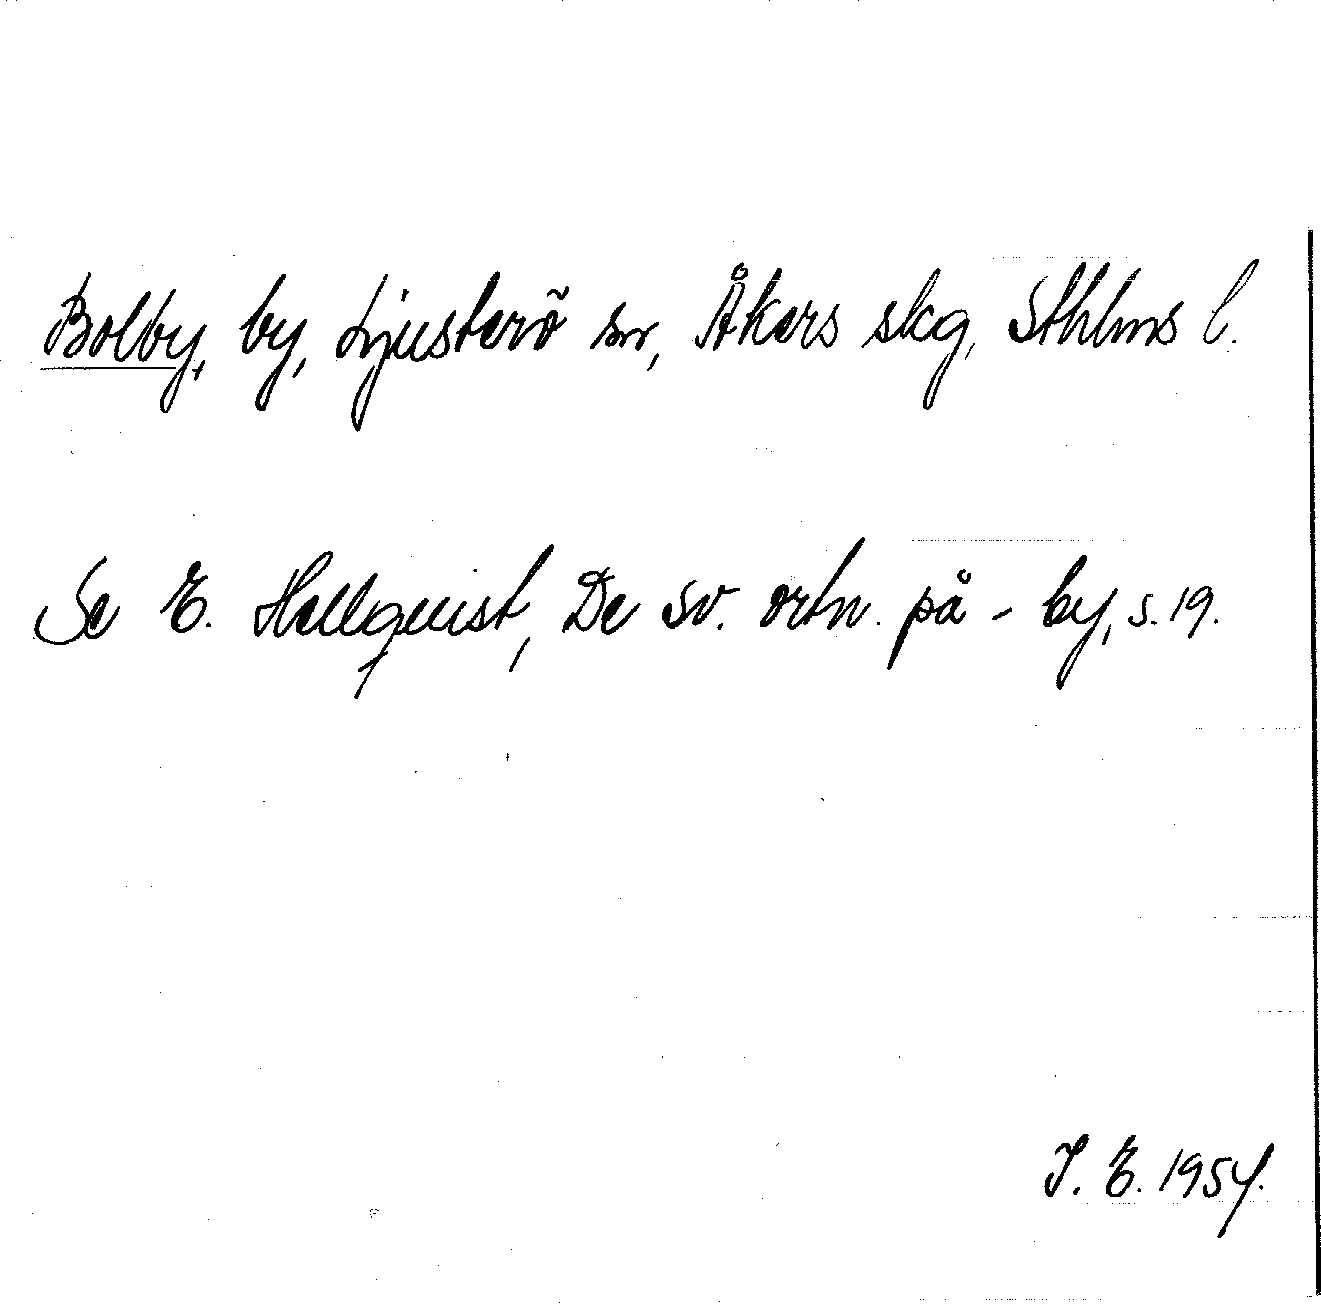 Bolby, by, Ljusterö sn, Åkers skg, Sthlms l.
Se E. Hellquist, De sv. ortn. på -by, s. 19.
I. E. 1954.